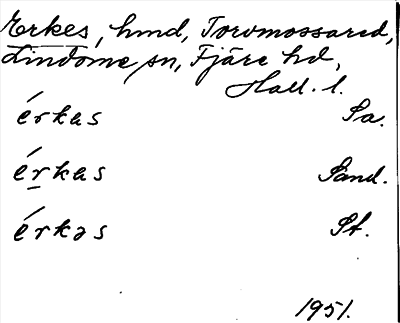 Erkes, hmd, Torvmossared,
Lindome sn, Fjäre hd,
Hall. l.
érkas Sa.
érkas Sand.
érkəs St.
1951.